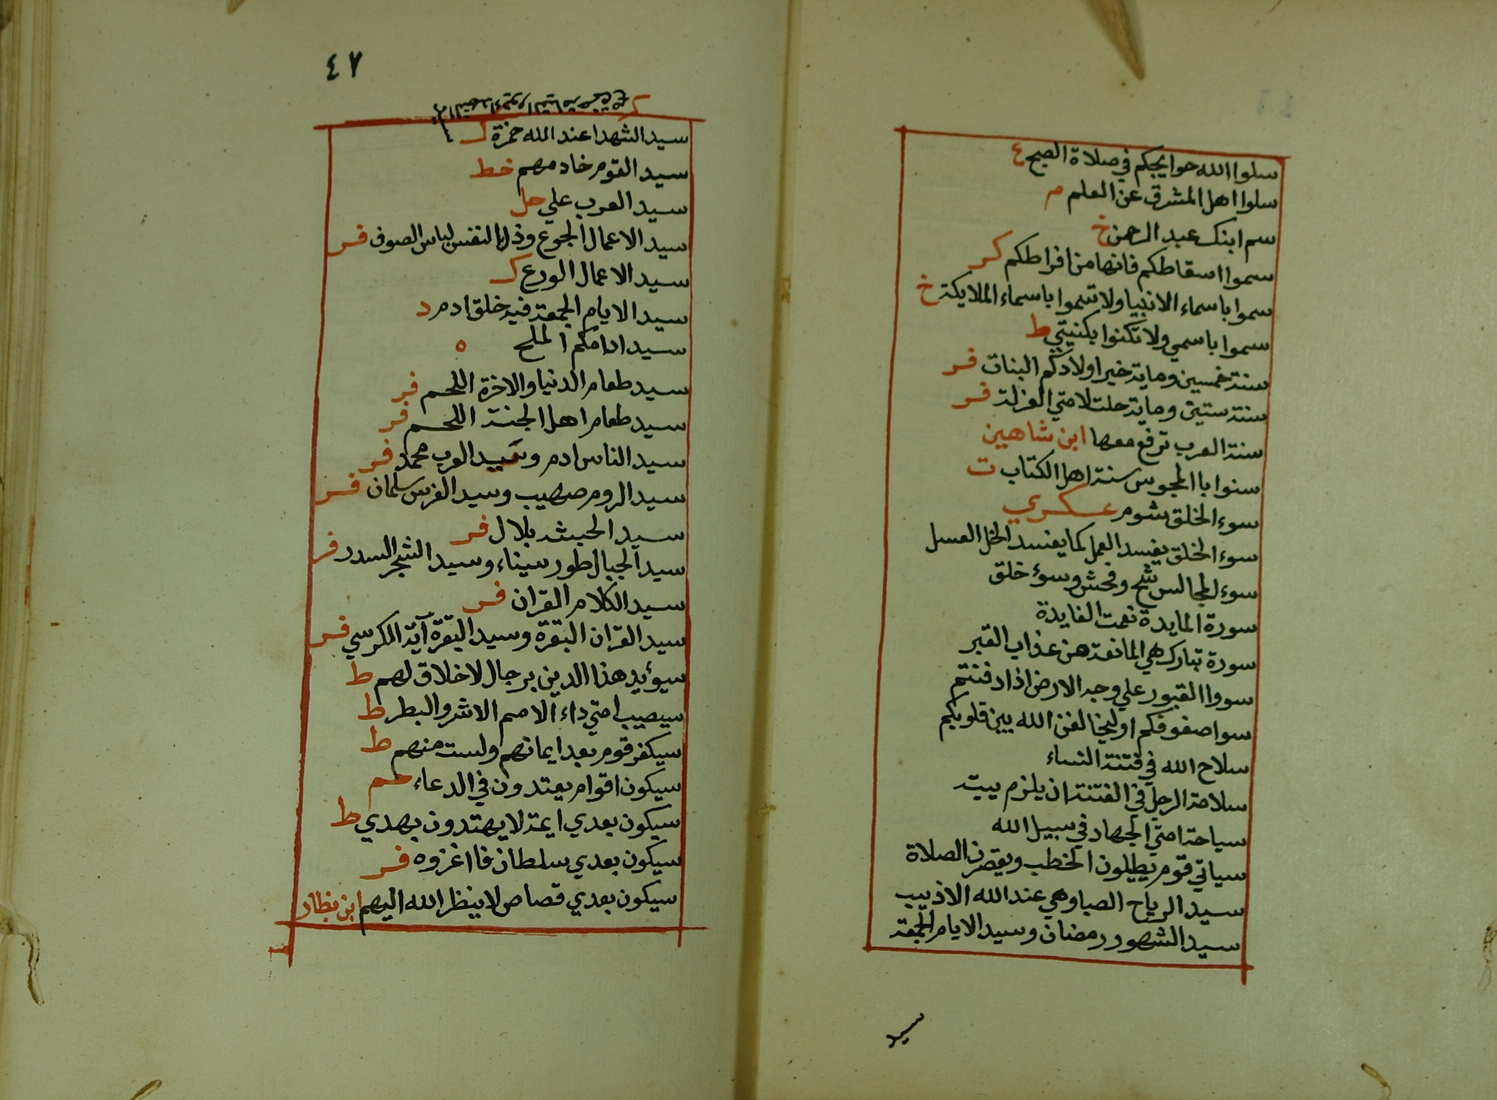 سلوا الله حوايجكم في صلاة الصبح ع
سلوا اهل المشرق عن العلم م
سم ابنك عبد الرحمن خ
سموا اسقاطكم فانها من افراطكم كر
سموا باسماء الانبيا ولا تسموا باسماء الملايكة خ
سموا باسمي ولا تكنوا بكنيتي ط
سنة خمسين وماية خير اولادكم البنات فر
سنة ستين وماية حلت لامتي العزلة فر
سنة العرب ترفع معها ابن شاهين
سنوا باالمجوس سنة اهل الكتاب ت
سوء الخلق شوم عسكري
سوء الخلق يفسد العمل كما يفسد الخل العسل
سوء المجالس شح وفحش وسوء خلق
سورة المايدة نعمت الفايدة
سورة تبارك هي المانعة من عذاب القبر
سووا القبور على وجه الارض اذا دفنتم
سوا صفوفكم او ليخالفن الله بين قلوبكم
سلاح الله في فتنة النساء
سلامة الرجل في الفتنة ان يلزم بيته
سياحة امتي الجهاد في سبيل الله
سياتي قوم يطيلون الخطب ويقصرن الصلاة
سيد الرياح الصبا وهي عند الله الاذيب
سيد الشهور رمضان وسيد الايام الجمعة
سيد
٤٧
سيد الشهدا عند الله حمزة ك
سيد القوم خادمهم خط
سيد العرب علي حل
سيد الاعمال الجوع وذل النفس لباس الصوف فر
سيد الاعمال الورع ك
سيد الايام الجمعة فيه خلق ادم د
سيد ادامكم الملح ه
سيد طعام الدنيا والاخرة اللحم فر
سيد طعام اهل الجنة اللحم فر
سيد الناس ادم وسيد العرب محمد فر
سيد الروم صهيب وسيد الفرس سلمان فر
سيد الحبشة بلال فر
سيد الجبال طور سيناء وسيد الشجر السدر فر
سيد الكلام القران فر
سيد القران البقرة وسيد البقرة آية الكرسي فر
سيؤيد هذا الدين برجال لا خلاق لهم ط
سيصيب امتي داء الامم الاشر والبطر ط
سيكفر قوم بعد ايمانهم ولست منهم ط
سيكون اقوام يعتدون في الدعاء حم
سيكون بعدي ايمة لا يهتدون بهدي ط
سيكون بعدي سلطان فااغزوه فر
سيكون بعدي قصاص لا ينظر الله اليهم ابن نظار